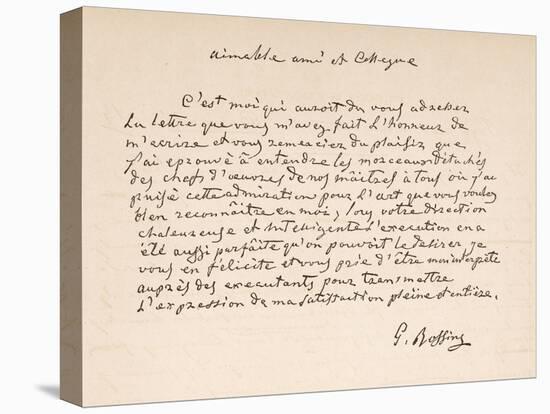 aimable ami et Collegue
C'est moi qui auroit du vous adresser
la lettre que vous m'avez fait l'honneur de
m'ecrire et vous remercier du plaisir que
j'ai eprouvé à entendre les morceaux détachés
des chefs d'oeuvres de nos maîtres à tous où j'ai
puisé cette admiration pour l'art que vous voulez
bien reconnâitre en moi; sous votre direction
chaleureuse et intelligente l'execution en a
été aussi parfaite qu'on pouvoit le desirer, je
vous en félicite et vous prie d'être mon interpète
auprès des executants pour transmettre
l'expression de ma satisfaction pleine et entière.
G. Rossini